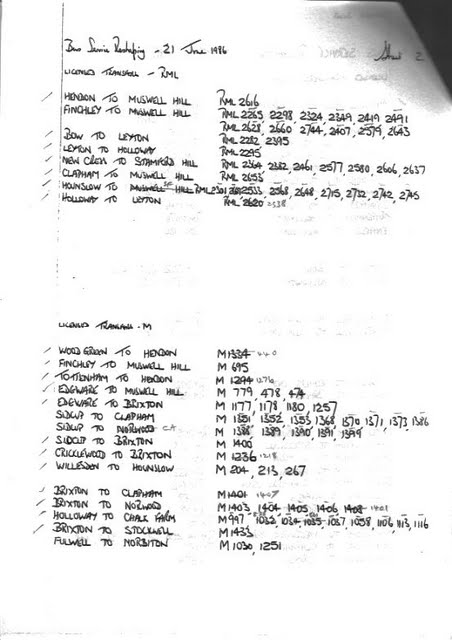 Bus Service Reshaping - 21 June 1986 Sheet 2
LICENSED TRANSFER - RML
/ HENDON TO MUSWELL HILL RML 2616
/ FINCHLEY TO MUSWELL HILL RML 2265 2298, 2324, 2349, 2419 2491
RML 2628, 2660, 2744, 2407, 2579, 2643
/ BOW TO LEYTON RML 2282 2395
/ LEYTON TO HOLLOWAY RML 2295
/ NEW CROSS TO STAMFORD HILL RML 2364, 2382, 2461, 2577, 2580, 2606, 2637
/ CLAPHAM TO MUSWELL HILL RML 2653
/ HOUNSLOW TO MUSWELL HILL RML 2301 2533 2568, 2648, 2715, 2732, 2742, 2745
/ HOLLOWAY TO LEYTON RML 2620 2538
LICENSED TRANSFER - M
/ WOOD GREEN TO HENDON M 1334 440
/ FINCHLEY TO MUSWELL HILL M 695
/ TOTTENHAM TO HENDON M 1294 1276
/ EDGWARE TO MUSWELL HILL M 779, 478, 474
/ EDGWARE TO BRIXTON M 1177, 1178, 1180, 1257
/ SIDCUP TO CLAPHAM M 1351, 1352, 1353, 1368, 1370, 1371, 1373 1386
/ SIDCUP TO NORWOOD CA M 1388, 1389, 1390, 1391, 1399
/ SIDCUP TO BRIXTON M 1400
/ CRICKLEWOOD TO BRIXTON M 1236 1218
/ WILLESDEN TO HOUNSLOW M 204, 213, 267
/ BRIXTON TO CLAPHAM M 1401 1407
/ BRIXTON TO NORWOOD M 1403, 1404, 1405, 1406, 1408
/ HOLLOWAY TO CHALK FARM M 997, 1032, 1034, 1035, 1037, 1058, 1106, 1113, 1116
/ BRIXTON TO STOCKWELL M 1433
FULWELL TO NORBITON M 1030, 1251